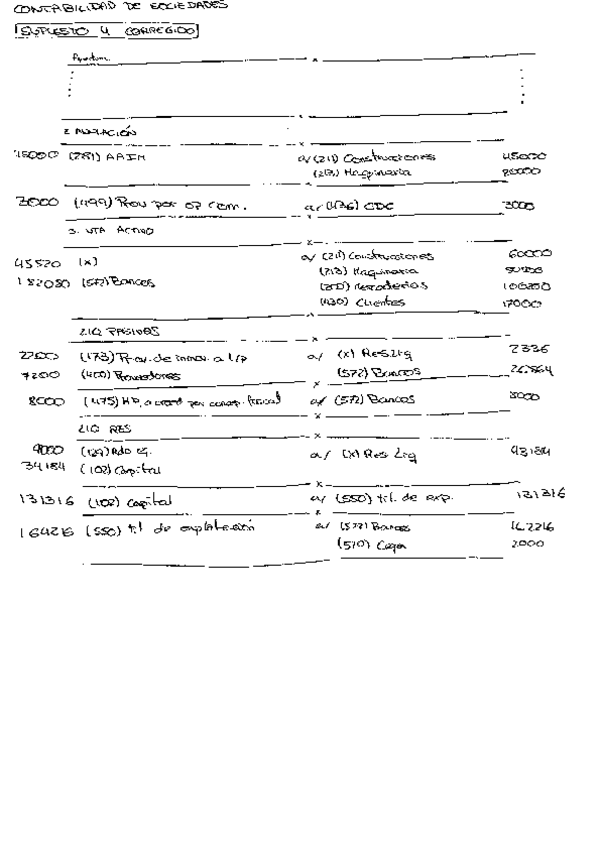 CONTABILIDAD DE SOCIEDADES
SUPUESTO 4 CORREGIDO
Apertura.
2. ANULACIÓN
45000 (281) AAIM a/ (211) Construcciones 45000
(213) Maquinaria 20000
3000 (499) Prov por op com. a/ (436) CDC 3000
3. VTA ACTIVO
45520 (x) a/ (211) Construcciones 60000
182080 (572) Bancos (213) Maquinaria
(300) Mercaderías
(430) Clientes 17000
LIQ PASIVOS
(173) Prov. de inmov. a l/p a/ (x) Res. Liq 2336
7200 (400) Proveedores (572) Bancos 26.864
8000 (475) HP, acreed por concep. fiscal a/ (572) Bancos 8000
LIQ RES
9000 (129) Rdo ej. a/ (x) Res Liq 43184
34184 (102) Capital
131316 (102) Capital a/ (550) tit. de exp. 131316
164216 (550) tit de explotación a/ (572) Bancos 162216
(570) Caja 2000